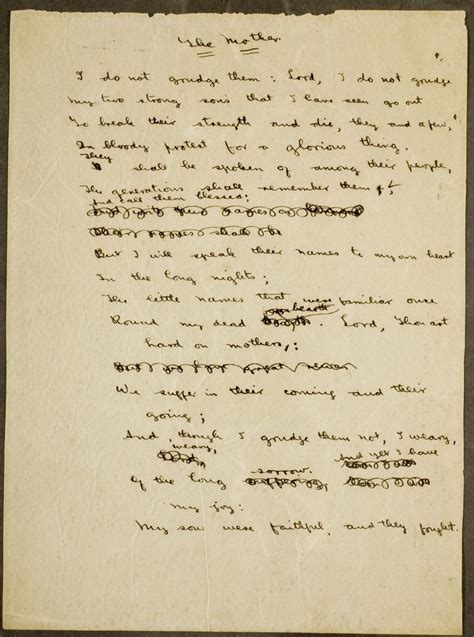 The Mother.
I do not grudge them: Lord, I do not grudge
my two strong sons that I have seen go out
To break their strength and die, they and a few,
In bloody protest for a glorious thing.
They
shall be spoken of among their people,
The generations shall remember them,
And call them blessed;
But I will speak their names to my own heart
In the long nights;
The little names that were familiar once
hearth
Round my dead. Lord, Thou art
hard on mothers:
We suffer in their coming and their
going;
And, though I grudge them not, I weary,
weary, And yet I have
sorrow.
Of the long
my joy:
My sons were faithful, and they fought.